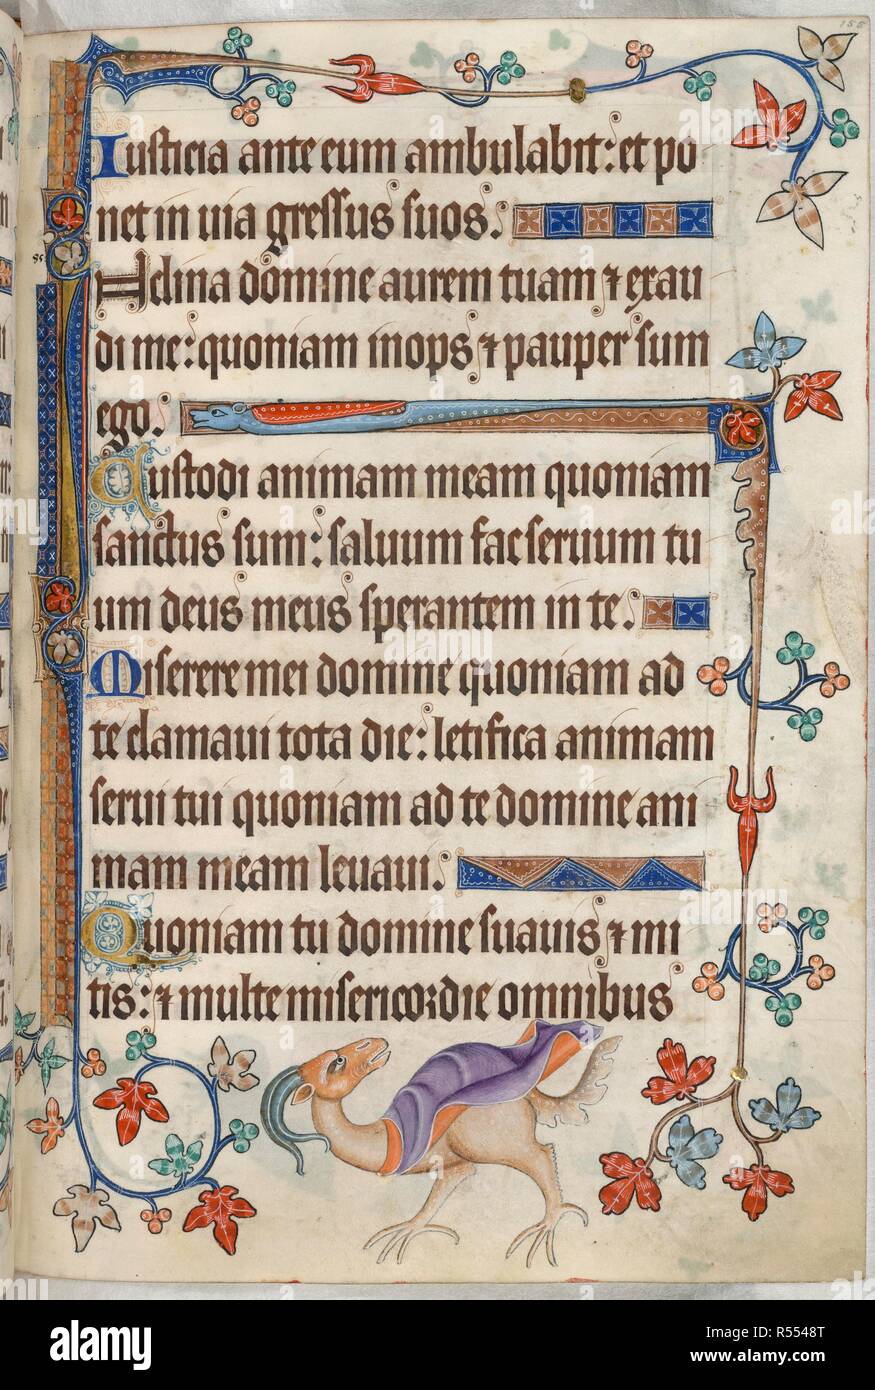 155
Iusticia ante eum ambulabit: et po
net in uia gressus suos.
85
Inclina domine aurem tuam ⁊ exau
di me: quoniam inops ⁊ pauper sum
ego.
Custodi animam meam quoniam
sanctus sum: saluum fac seruum tu
um deus meus sperantem in te.
Miserere mei domine quoniam ad
te clamaui tota die: letifica animam
serui tui quoniam ad te domine ani
mam meam leuaui.
Quoniam tu domine suauis ⁊ mi
tis: ⁊ multe misericordie omnibus
alamy
Image ID: R5548T
www.alamy.com